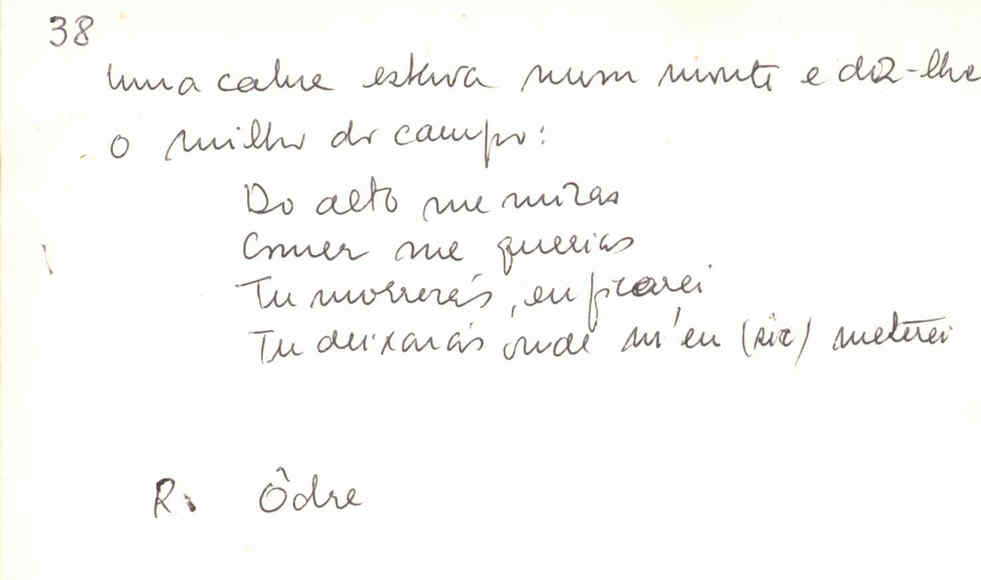 38
Uma cabra estava num monte e diz-lhe
o milho do campo:
Do alto me miras
Comer me querias
Tu morrerás, eu ficarei
Tu deixarás onde m'eu (sic) meterei
R. Ôdre